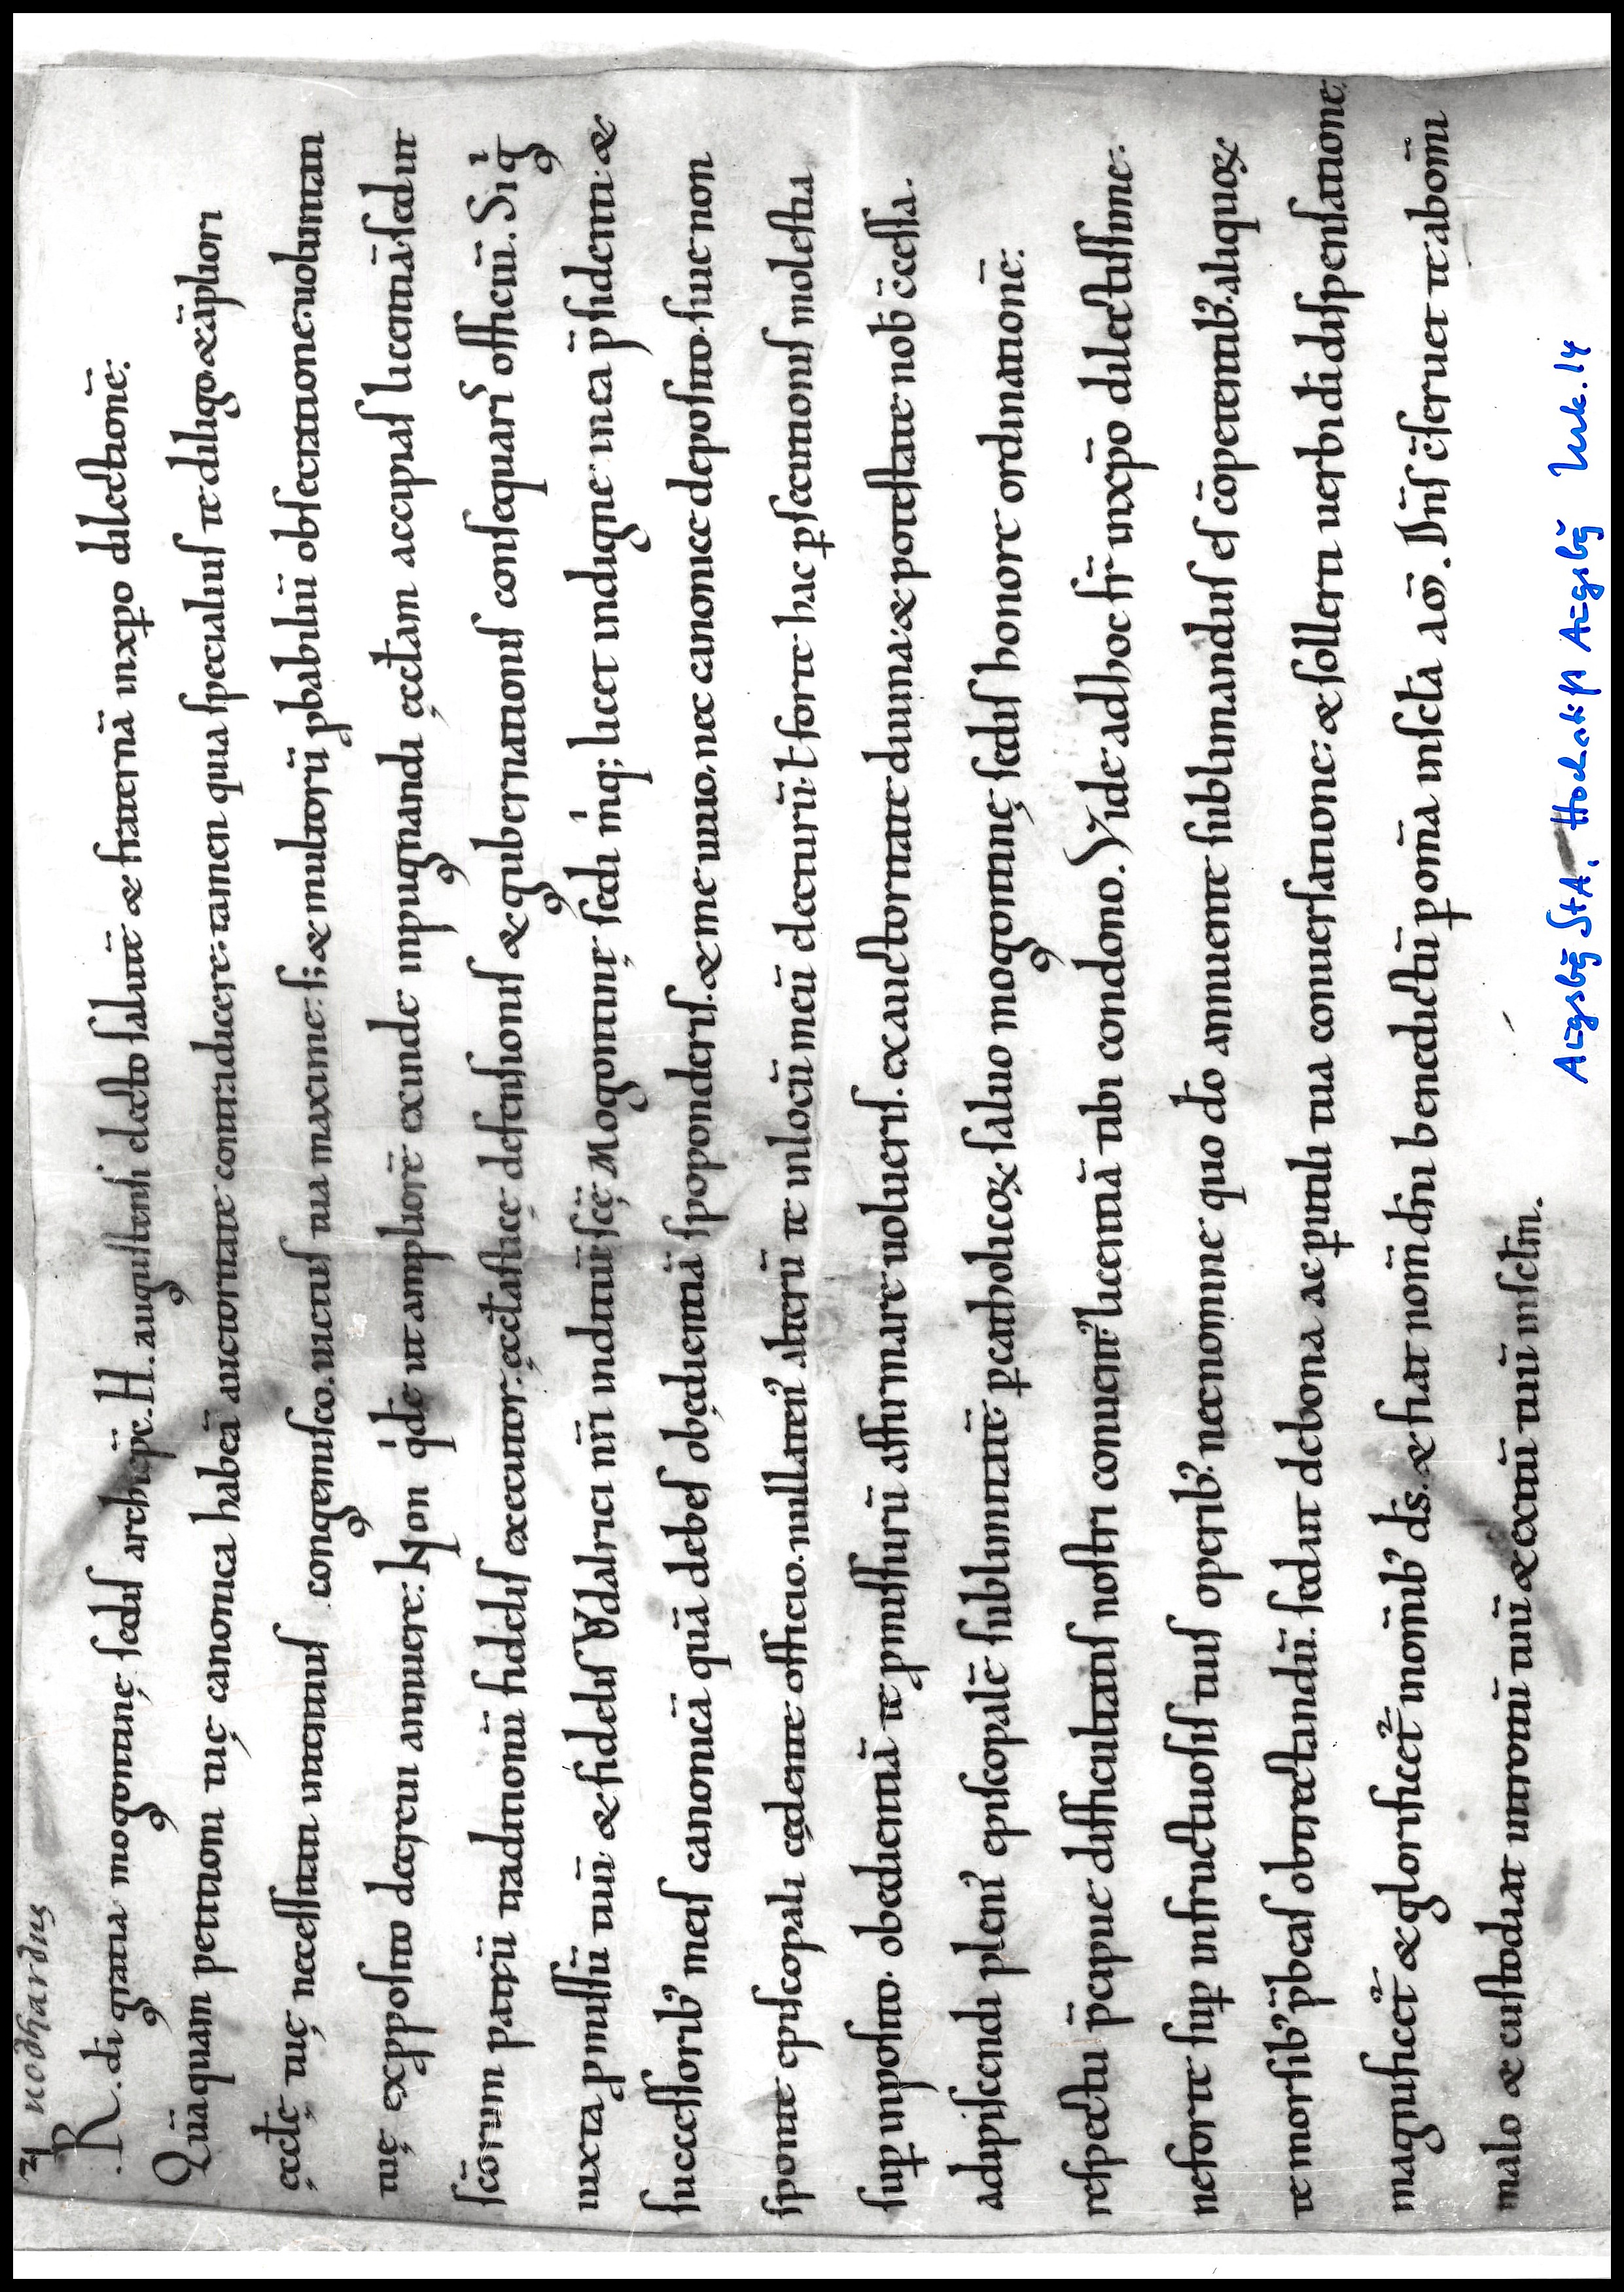 nodhardus
.R. di gratia mogontinę sedis archiep̄c. H. augustensi electo salutē & fraternā inxp̄o dilectionē.
Quāquam petitioni tuę canonica habeā auctoritate contradicere. tamen quia specialius te diligo. & āpliori
ęcctę tuę necessitati intentius congemisco. uictus tua maxime. s; & multorū ꝓbabiliū obsecratione. uoluntati
tuę exꝓposito decreui annuere. Non qͥdē ut ampliorē exinde inpugnandi ęcctam accipias licentiā. sed ut
sc̄orum patrū traditionū fidelis executor. ęcctasticę defensionis & gubernationis consequaris officiū. Siqͥ
iuxta ꝓmissū tuū & fidelis Vdalrici nr̄i inditiū scę̄ Mogontinę sedi inqͥ; licet indigne inea p̄sidenti. &
successorib' meis canonicā quā debes obędientiā spoponderis. & me uiuo. nec canonice deposito. siue non
sponte episcopali cędente officio. nullaten' alterū te inlocū meū electurū. ł forte hac ꝑsecutionis molestia
suꝑ inposito. obedientiā te ꝓmissurū affirmare uolueris. exauctoritate diuina. & potestate nob̄ c̄cessa.
adipiscendi pleni' episcopalē sublimitatē ꝑcatholicoꝝ. saluo mogontinę sedis honore ordinationē.
respectu p̄cipue difficultatis nostri conuent' licentiā tibi condono. Vide adhoc fr̄ inxp̄o dilectissime.
neforte suꝑ infructuosis tuis operib'. necnomine quo dō annuente sublimandus es cōpetentib'. aliquoꝝ
te morsib' p̄beas obtrectandū. sed ut debona ac ꝑutili tua conuersatione. & sollerti uerbi di dispensatione.
magnificet̄ & glorificet̄ inom̄ib' ds̄. & fiat nom̄ dn̄i benedictū ꝑom̄ia inscta. aō. Dn̄s c̄seruet te abom̄i
malo & custodiat introitū tuū & exitū tuū insctm̄.
Augsbg StA. Hochstift Augsbg Urk. 14